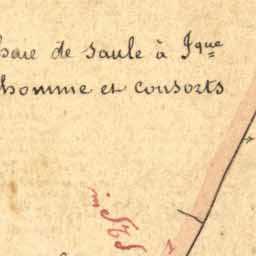 haie de saule à Jque
homme et consorts